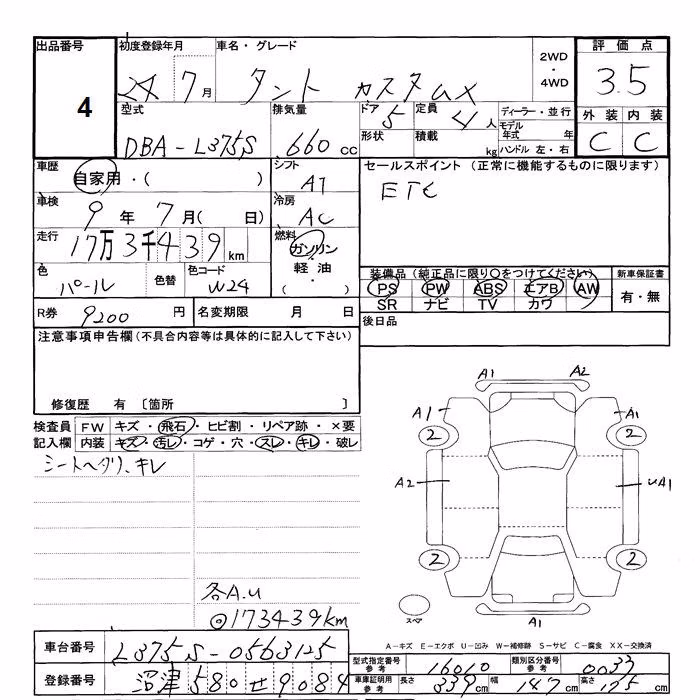 出品番号 初度登録年月 車名・グレード 2WD・4WD 評価点
4 24 7月 タント カスタムX 3.5
型式 排気量 ドア 定員 ディーラー・並行 外装 内装
DBA-L375S 660cc 5 4人 モデル年式 年 C C
形状 積載 kg ハンドル 左・右
車歴 シフト セールスポイント (正常に機能するものに限ります)
自家用・( ) AT ETC
車検 冷房
9年 7月( 日) AC
走行 燃料
17万3千439km ガソリン
色 色替 色コード 軽油
パール W24 ・( )
装備品(純正品に限り○をつけてください) 新車保証書
PS PW ABS エアB AW 有・無
SR ナビ TV カワ
R券 9200円 名変期限 月 日 後日品
注意事項申告欄(不具合内容等は具体的に記入して下さい)
修復歴 有〔箇所 〕
検査員 FW キズ・飛石・ヒビ割・リペア跡・×要
記入欄 内装 キズ・汚レ・コゲ・穴・スレ・キレ・破レ
シートヘタリ、キレ
A1 A2
A1 A1
2 2
A2 UA1
2 2
スペア A1
各A.U
◎173439km
A-キズ E-エクボ U-凹み W-補修跡 S-サビ C-腐食 XX-交換済
車台番号 L375S-0563125
型式指定番号 参考 16010 類別区分番号 参考 0033
登録番号 沼津 580せ9084
車庫証明用 参考 長さ 339cm 幅 147cm 高さ cm